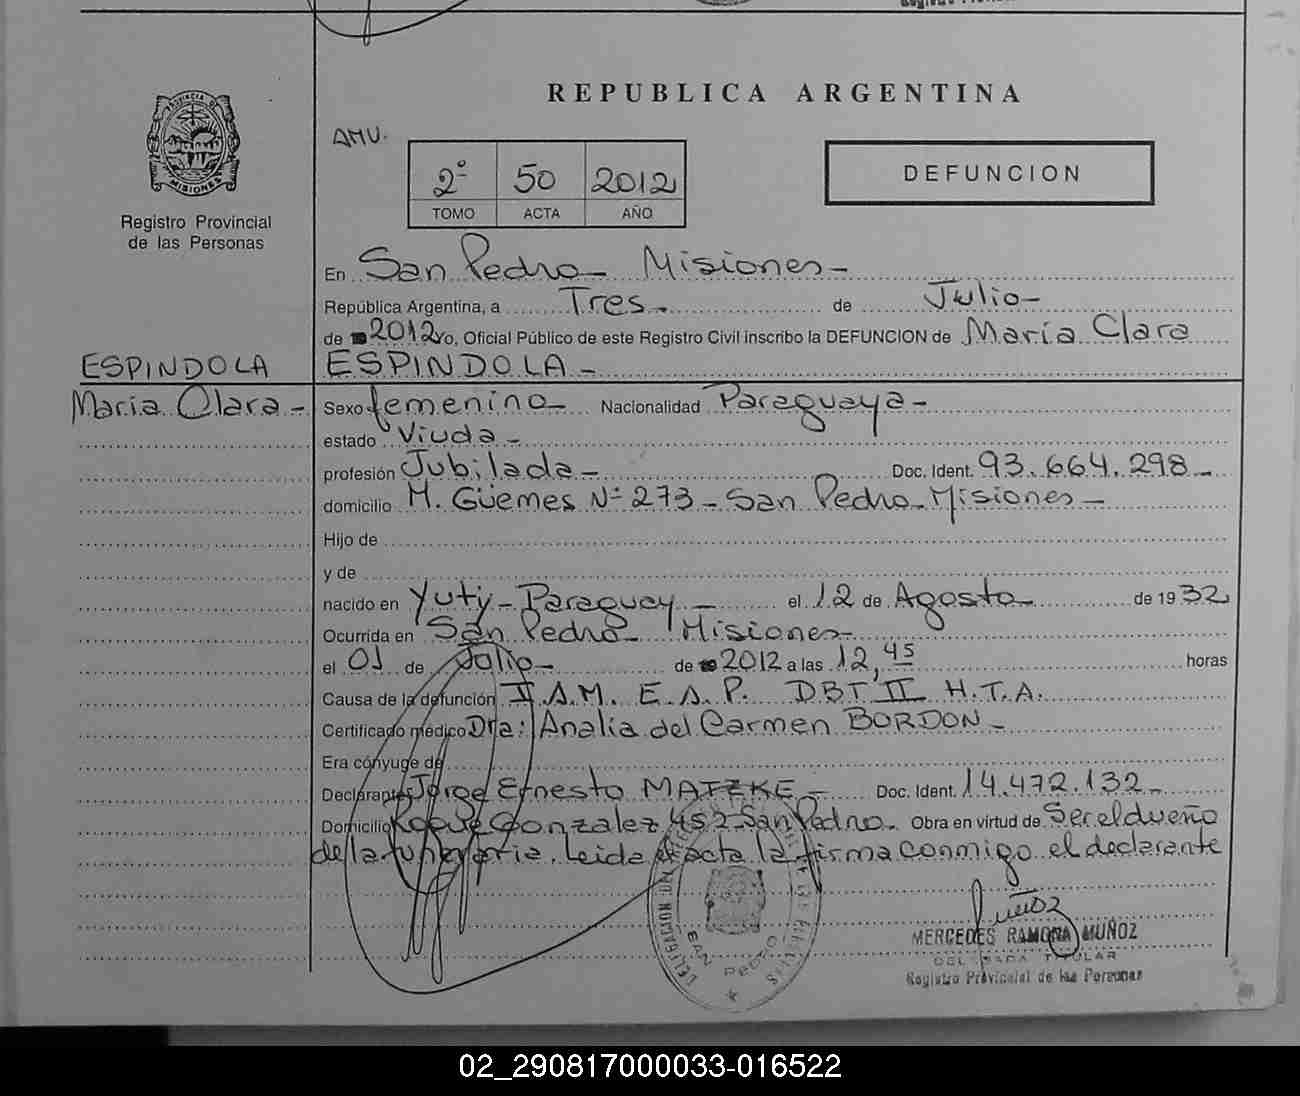 REPUBLICA ARGENTINA
PROVINCIA DE
MISIONES
Registro Provincial
de las Personas
AMU.
2º 50 2012
TOMO ACTA AÑO
DEFUNCION
En San Pedro Misiones
República Argentina, a Tres de Julio
de 2012 yo, Oficial Público de este Registro Civil inscribo la DEFUNCION de María Clara
ESPINDOLA
ESPINDOLA
Maria Clara
Sexo femenino Nacionalidad Paraguaya
estado Viuda
profesión Jubilada Doc. Ident. 93.664.298
domicilio M. Güemes Nº 273 - San Pedro Misiones
Hijo de
y de
nacido en Yuty - Paraguay el 12 de Agosto de 1932
Ocurrida en San Pedro Misiones
el 01 de Julio de 2012 a las 12,45 horas
Causa de la defunción I.A.M. E.A.P. DBT II H.T.A.
Certificado médico Dra: Analia del Carmen BORDON
Era cónyuge de
Declarante Jorge Ernesto MATZKE Doc. Ident. 14.472.132
Domicilio Roque Gonzalez 452 San Pedro. Obra en virtud de Ser el dueño
de la funeraria. Leida el acta la firma conmigo el declarante
SAN PEDRO
Muñoz
MERCEDES RAMONA MUÑOZ
DELEGADA TITULAR
Registro Provincial de las Personas
02_290817000033-016522